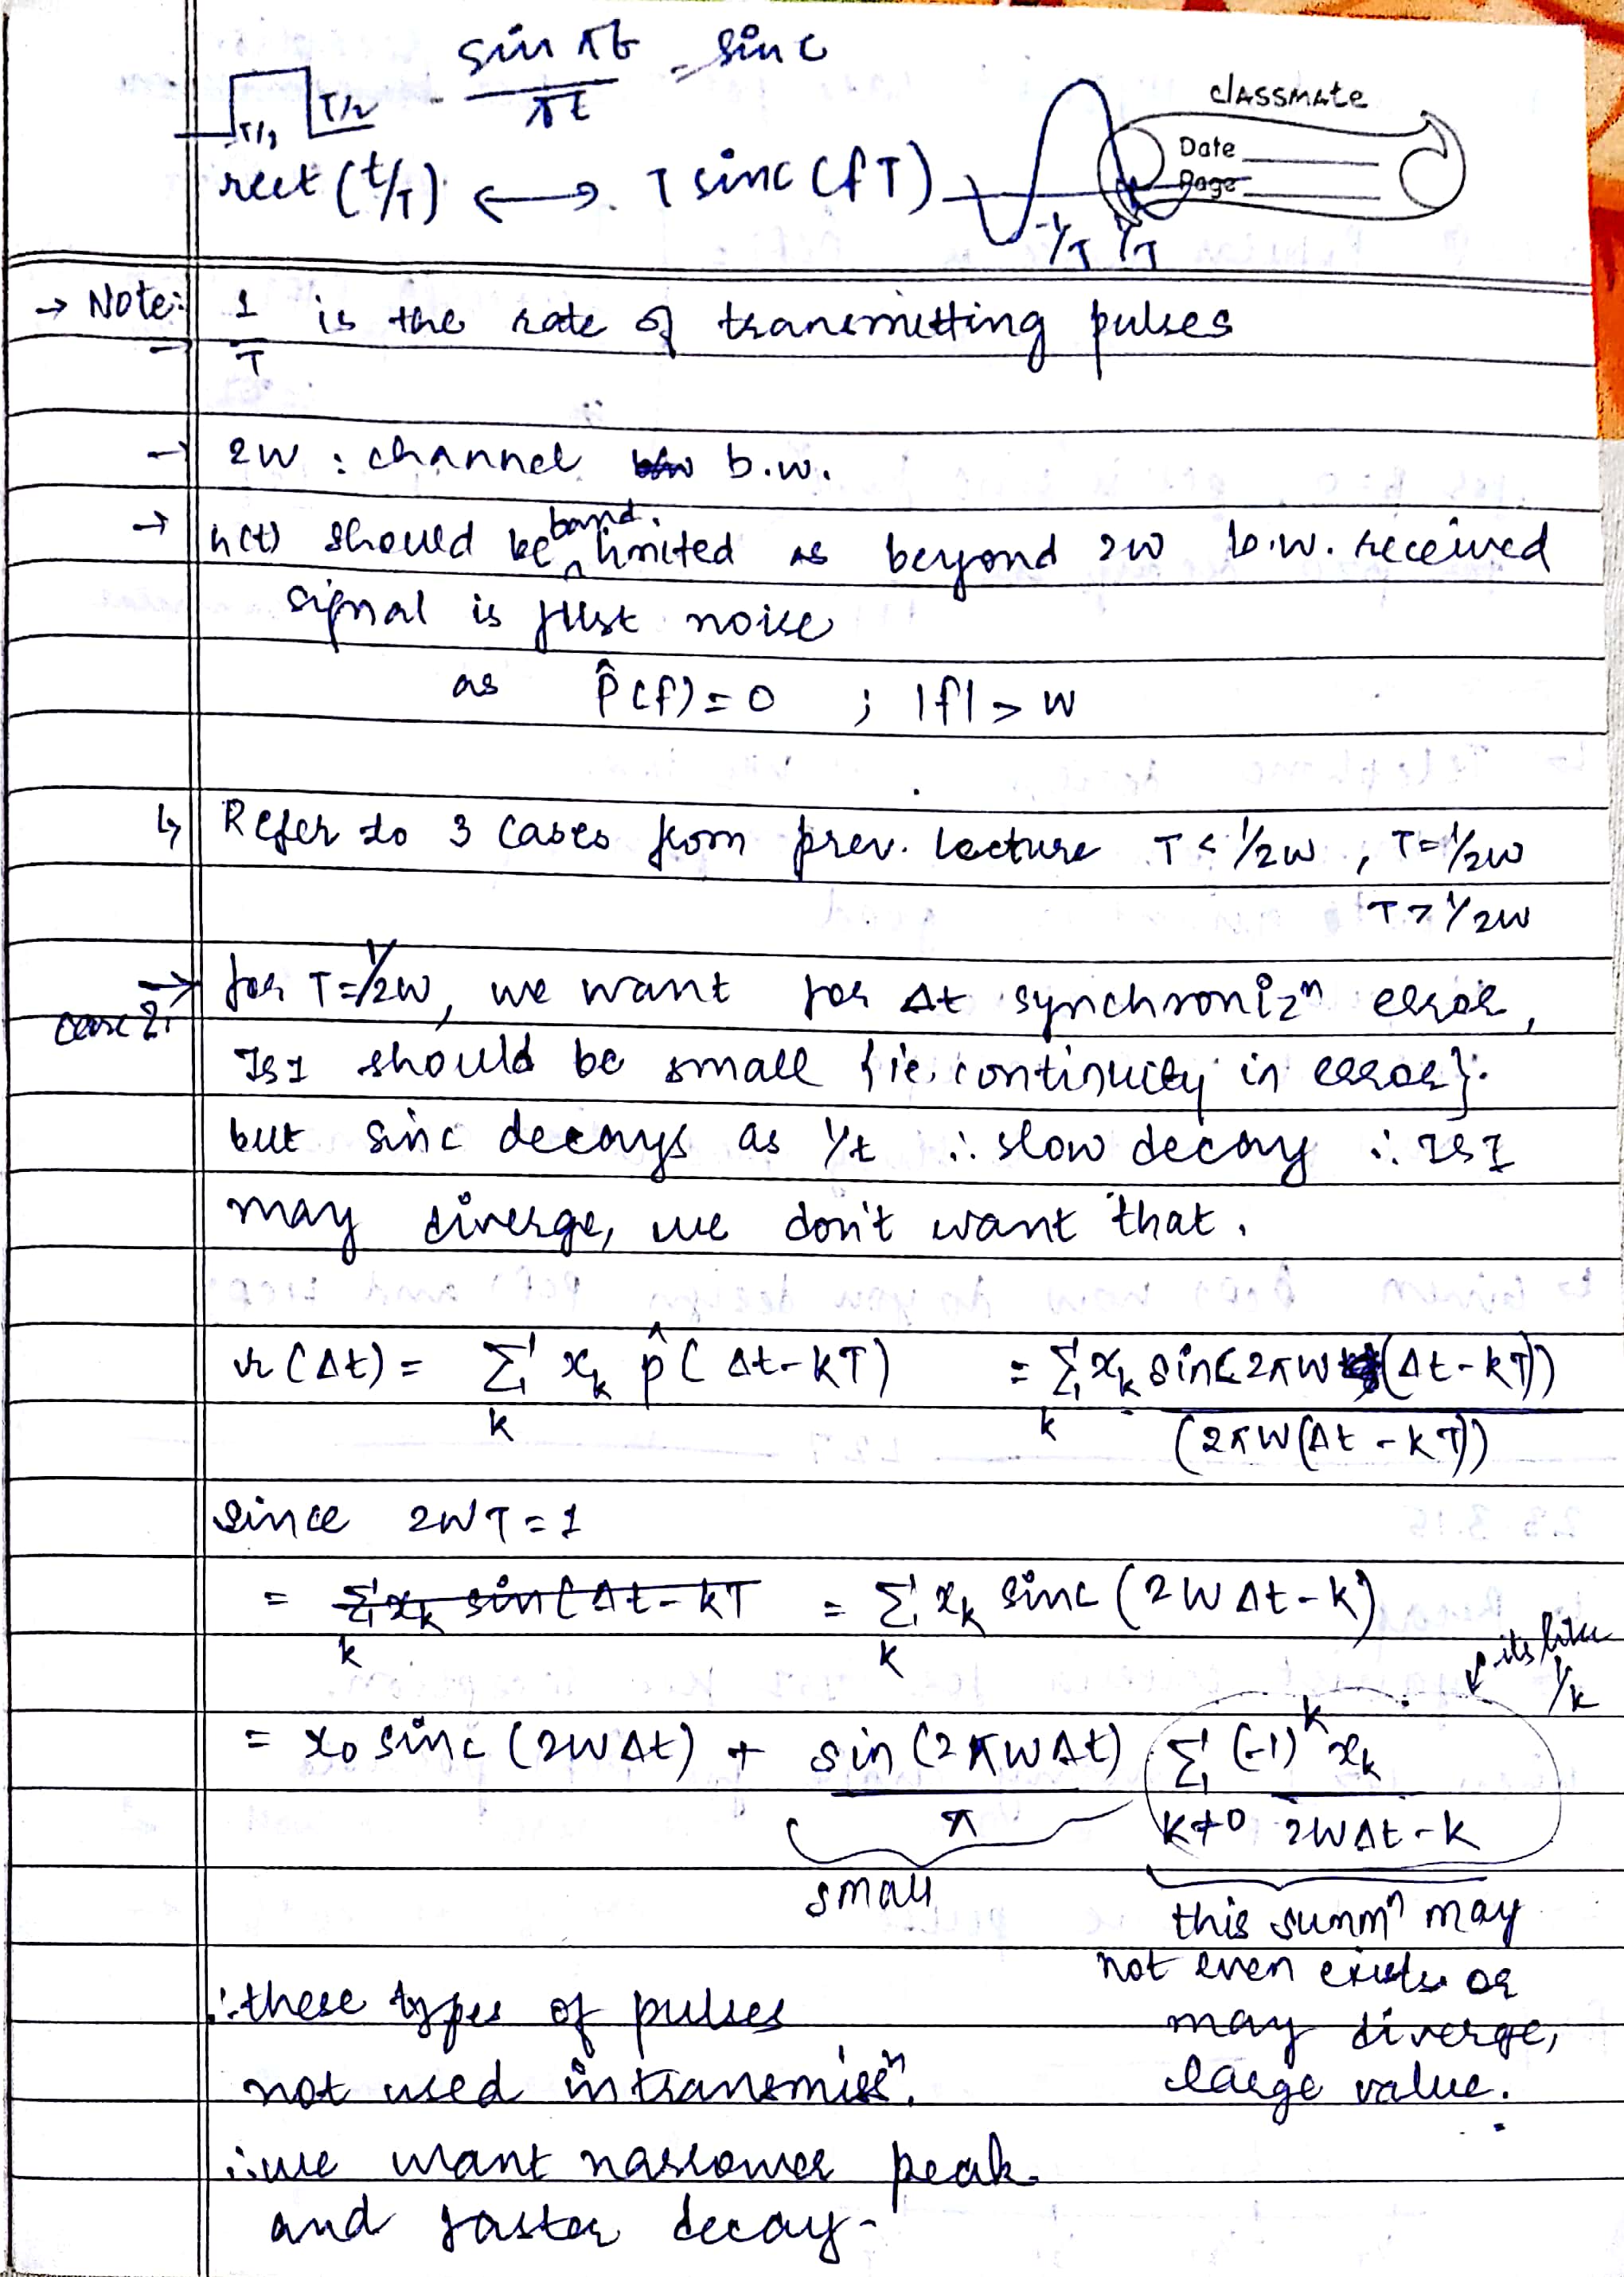 sin πt = sinc
πt
T/2 T/2
classmate
Date
Page
rect (t/T) ⟷ T sinc (fT)
-1/T 1/T
→ Note: 1/T is the rate of transmitting pulses
→ 2W : channel b.w.
→ h(t) should be band limited as beyond 2W b.w. received
signal is just noise
as P̂(f) = 0 ; |f| > W
↳ Refer to 3 cases from prev. lecture T < 1/2W , T = 1/2W
T > 1/2W
→ for T = 1/2W, we want for Δt synchronizⁿ error,
case 2:
ISI should be small {ie. continuity in error}.
but sinc decays as 1/t ∴ slow decay ∴ ISI
may diverge, we don't want that.
r(Δt) = Σ_k x_k p̂(Δt - kT) = Σ_k x_k sin(2πW(Δt - kT)) / (2πW(Δt - kT))
since 2WT = 1
= Σ_k x_k sin(Δt - kT = Σ_k x_k sinc (2WΔt - k)
its like
1/k
= x₀ sinc (2WΔt) + sin (2πWΔt) / π Σ_{k≠0} (-1)^k x_k / 2WΔt - k
small
this summⁿ may
not even exists or
may diverge,
large value.
∴ these types of pulses
not used in transmissⁿ.
∴ we want narrower peak
and faster decay.